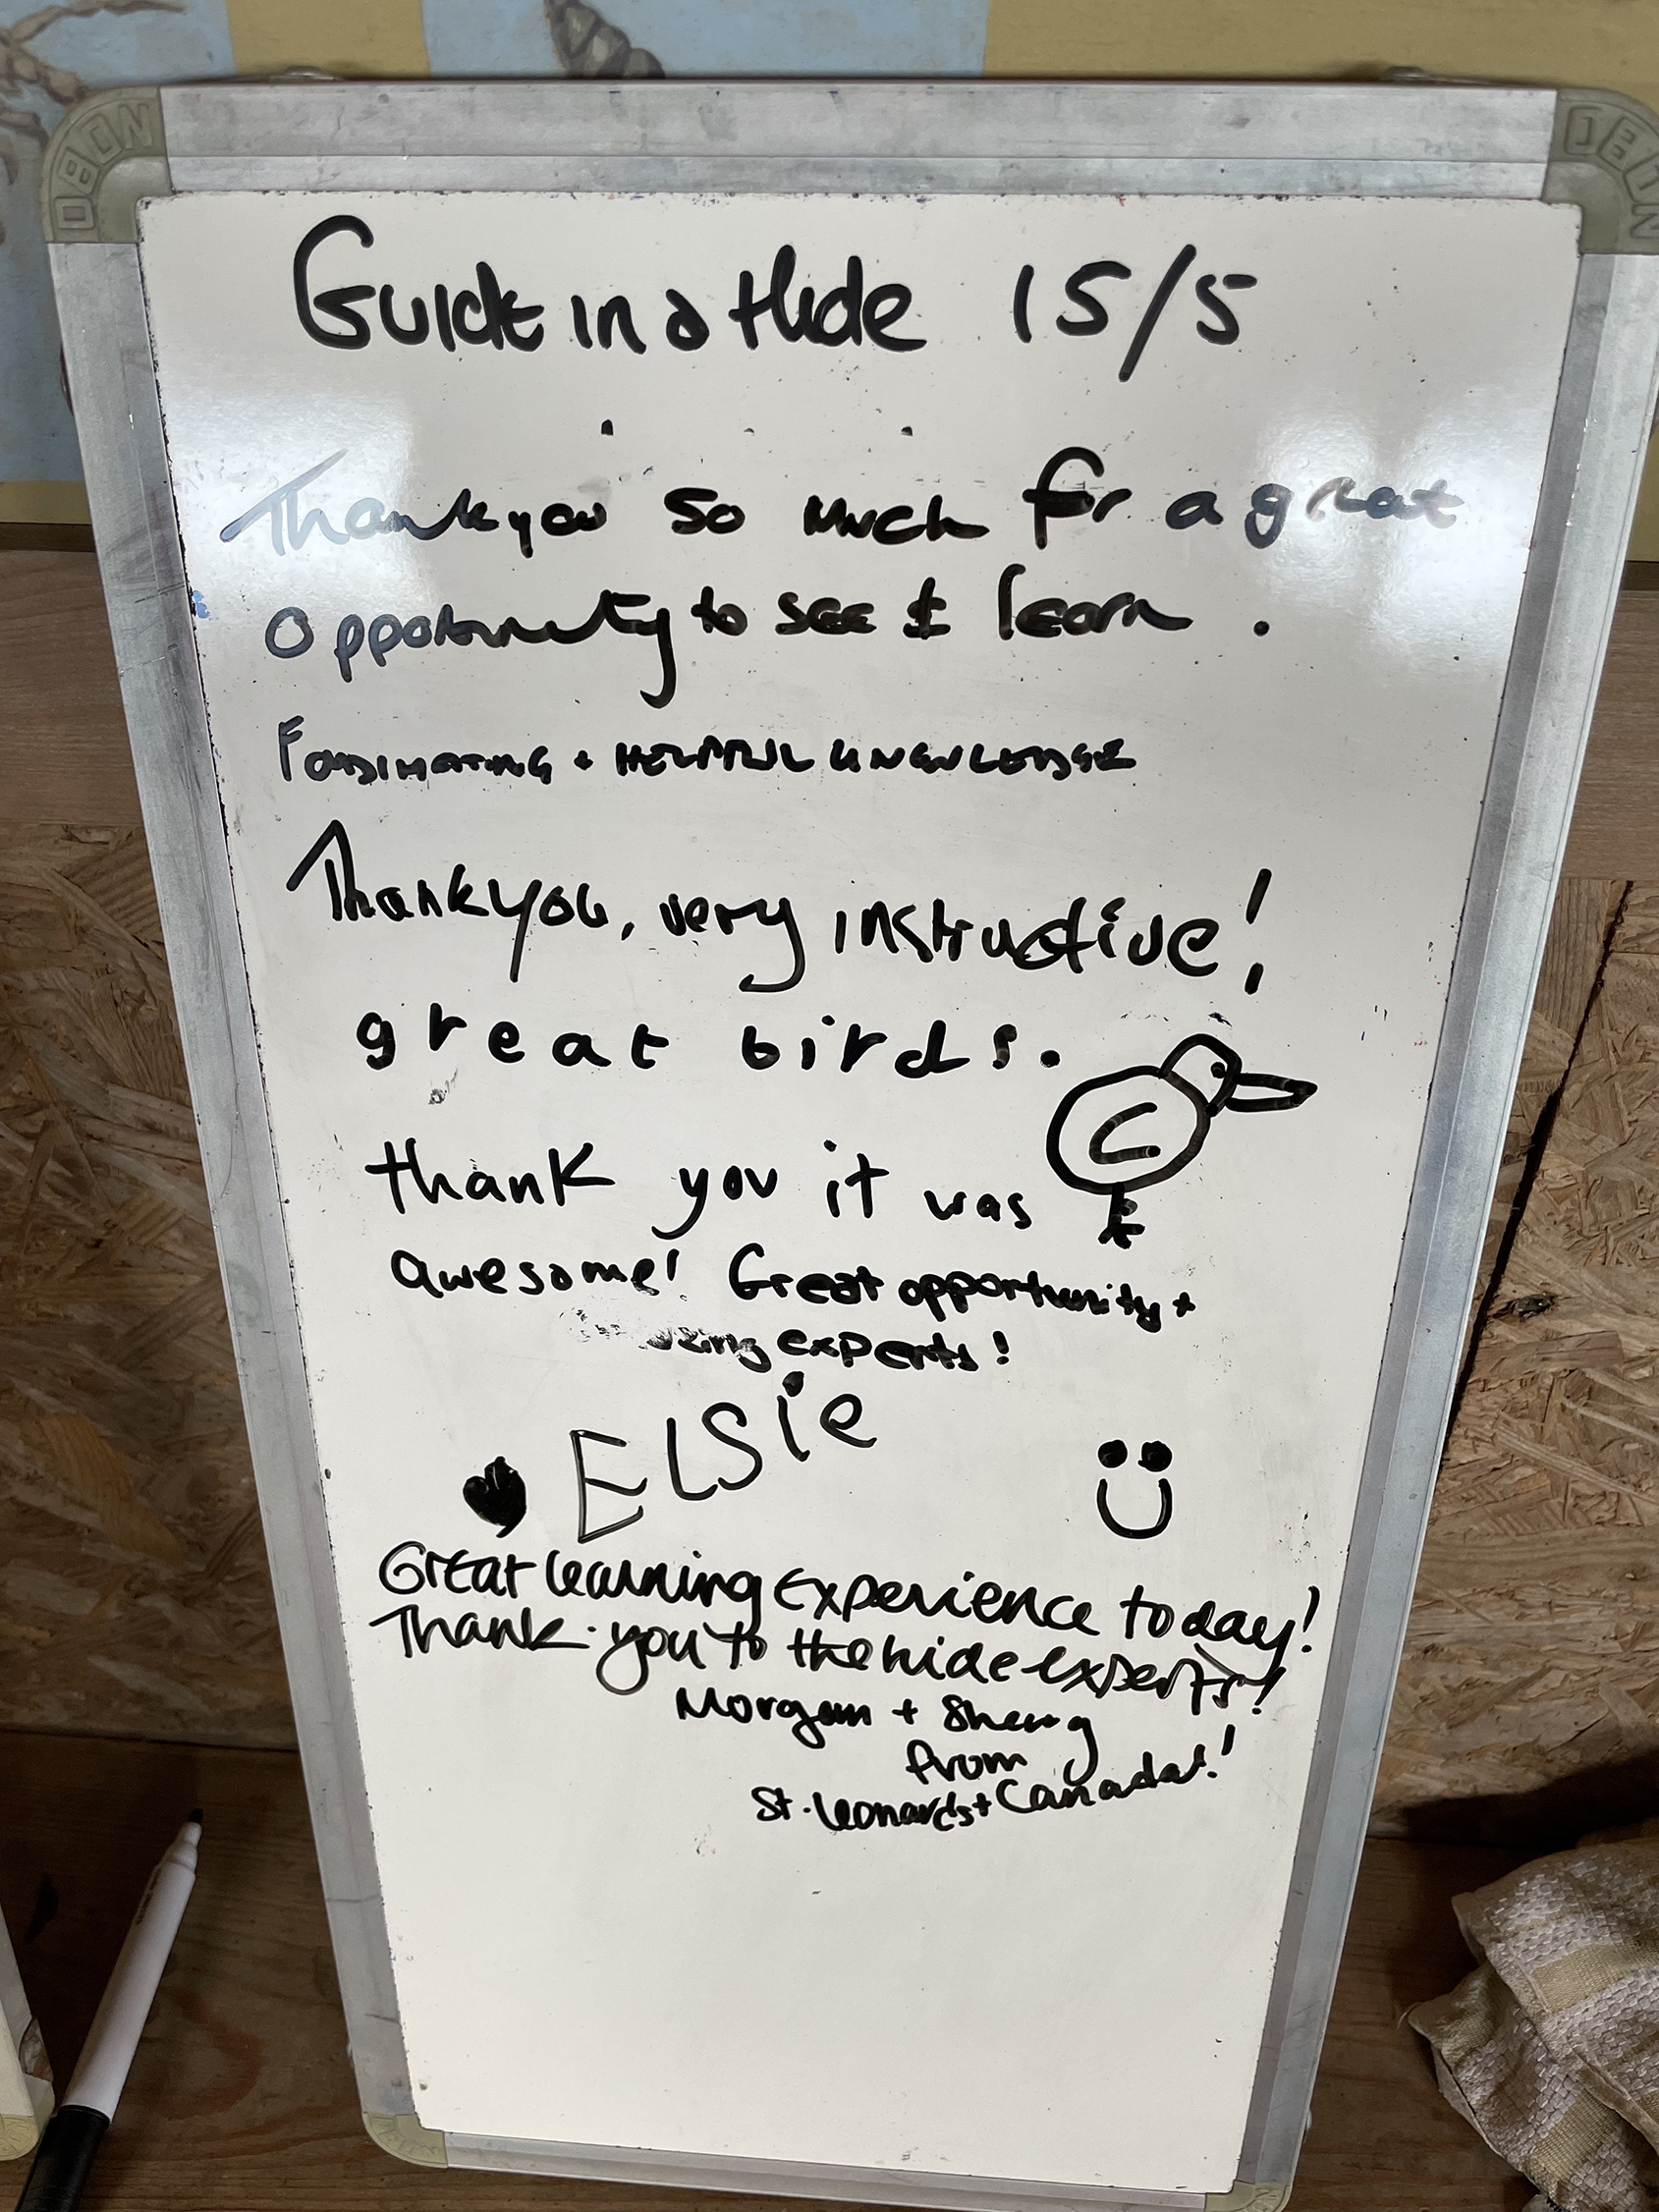 DBON
DBON
Guide in a Hide 15/5
Thankyou so much for a great
opportunity to see & learn .
FASCINATING + HELPFUL KNOWLEDGE
Thankyou, very instructive!
great birds.
thank you it was
awesome! Great opportunity +
experts!
ELSie
Great learning experience today!
Thank you to the hide experts!
Morgan +
from
St. Leonards + Canada!